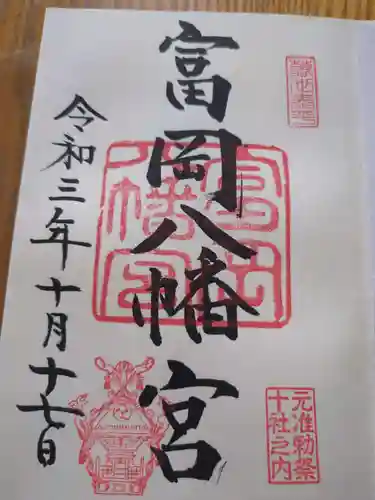 富岡八幡宮
元准勅祭
十社之内
富岡
八幡宮
令和三年十月十七日